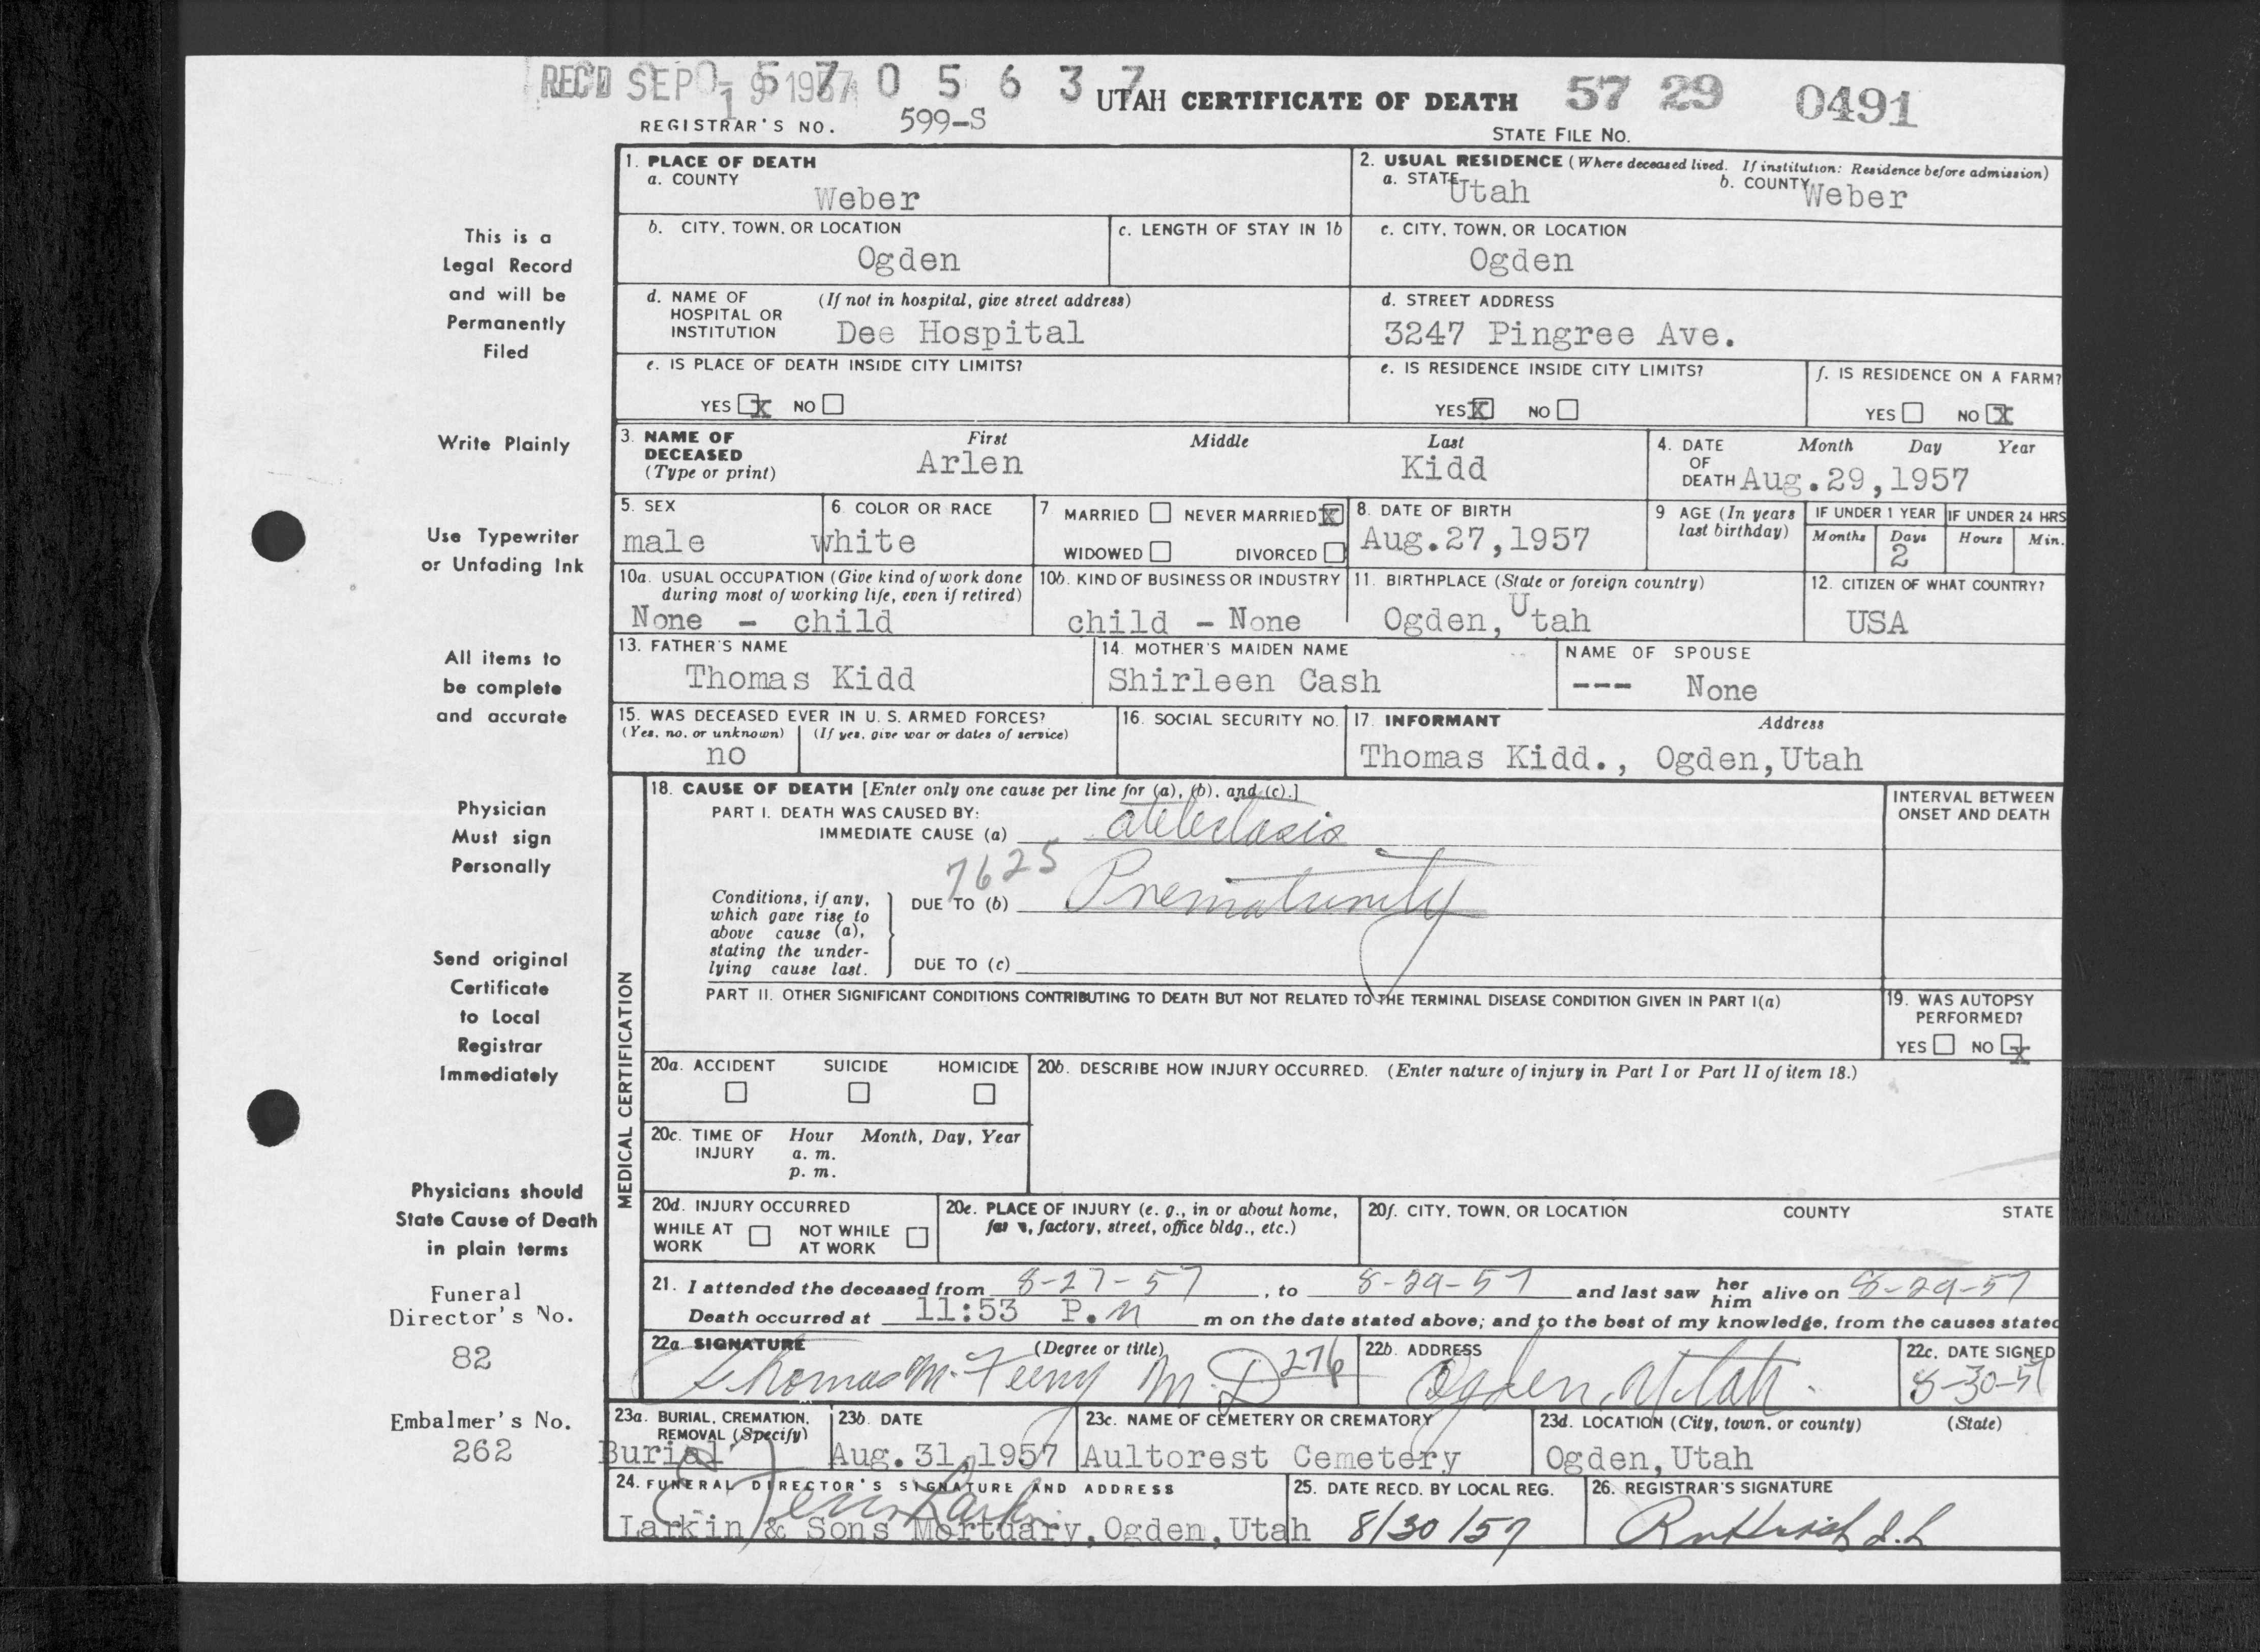 REC'D SEP 1957 0 5 6 3 7 UTAH CERTIFICATE OF DEATH 57 29 0491
REGISTRAR'S NO. 599-S STATE FILE NO.
1. PLACE OF DEATH
a. COUNTY
Weber
2. USUAL RESIDENCE (Where deceased lived. If institution: Residence before admission)
a. STATE Utah b. COUNTY Weber
b. CITY, TOWN, OR LOCATION
Ogden
c. LENGTH OF STAY IN 1b
c. CITY, TOWN, OR LOCATION
Ogden
d. NAME OF HOSPITAL OR INSTITUTION (If not in hospital, give street address)
Dee Hospital
d. STREET ADDRESS
3247 Pingree Ave.
e. IS PLACE OF DEATH INSIDE CITY LIMITS?
YES X NO
e. IS RESIDENCE INSIDE CITY LIMITS?
YES X NO
f. IS RESIDENCE ON A FARM?
YES NO X
3. NAME OF DECEASED (Type or print) First Middle Last
Arlen Kidd
4. DATE OF DEATH Month Day Year
Aug.29,1957
5. SEX
male
6. COLOR OR RACE
white
7. MARRIED NEVER MARRIED X
WIDOWED DIVORCED
8. DATE OF BIRTH
Aug.27,1957
9 AGE (In years last birthday)
IF UNDER 1 YEAR IF UNDER 24 HRS
Months Days Hours Min.
2
10a. USUAL OCCUPATION (Give kind of work done during most of working life, even if retired)
None - child
10b. KIND OF BUSINESS OR INDUSTRY
child - None
11. BIRTHPLACE (State or foreign country)
Ogden, Utah
12. CITIZEN OF WHAT COUNTRY?
USA
13. FATHER'S NAME
Thomas Kidd
14. MOTHER'S MAIDEN NAME
Shirleen Cash
NAME OF SPOUSE
--- None
15. WAS DECEASED EVER IN U. S. ARMED FORCES?
(Yes, no, or unknown) (If yes, give war or dates of service)
no
16. SOCIAL SECURITY NO.
17. INFORMANT Address
Thomas Kidd., Ogden,Utah
MEDICAL CERTIFICATION
18. CAUSE OF DEATH [Enter only one cause per line for (a), (b), and (c).]
PART I. DEATH WAS CAUSED BY:
IMMEDIATE CAUSE (a) atelectasis
INTERVAL BETWEEN ONSET AND DEATH
7625
Conditions, if any, which gave rise to above cause (a), stating the underlying cause last.
DUE TO (b) Prematurity
DUE TO (c)
PART II. OTHER SIGNIFICANT CONDITIONS CONTRIBUTING TO DEATH BUT NOT RELATED TO THE TERMINAL DISEASE CONDITION GIVEN IN PART I(a)
19. WAS AUTOPSY PERFORMED?
YES NO X
20a. ACCIDENT SUICIDE HOMICIDE
20b. DESCRIBE HOW INJURY OCCURRED. (Enter nature of injury in Part I or Part II of item 18.)
20c. TIME OF INJURY Hour Month, Day, Year
a. m.
p. m.
20d. INJURY OCCURRED
WHILE AT WORK NOT WHILE AT WORK
20e. PLACE OF INJURY (e. g., in or about home, farm, factory, street, office bldg., etc.)
20f. CITY, TOWN, OR LOCATION COUNTY STATE
21. I attended the deceased from 8-27-57, to 8-29-57 and last saw her him alive on 8-29-57
Death occurred at 11:53 P.M m on the date stated above; and to the best of my knowledge, from the causes stated
22a. SIGNATURE (Degree or title)
Thomas M. Feeny M.D 276
22b. ADDRESS
Ogden, Utah.
22c. DATE SIGNED
8-30-57
23a. BURIAL, CREMATION, REMOVAL (Specify)
Burial
23b. DATE
Aug.31,1957
23c. NAME OF CEMETERY OR CREMATORY
Aultorest Cemetery
23d. LOCATION (City, town, or county) (State)
Ogden,Utah
24. FUNERAL DIRECTOR'S SIGNATURE AND ADDRESS
Larkin
Larkin & Sons Mortuary,Ogden,Utah
25. DATE RECD. BY LOCAL REG.
8/30/57
26. REGISTRAR'S SIGNATURE
This is a
Legal Record
and will be
Permanently
Filed
Write Plainly
Use Typewriter
or Unfading Ink
All items to
be complete
and accurate
Physician
Must sign
Personally
Send original
Certificate
to Local
Registrar
Immediately
Physicians should
State Cause of Death
in plain terms
Funeral
Director's No.
82
Embalmer's No.
262